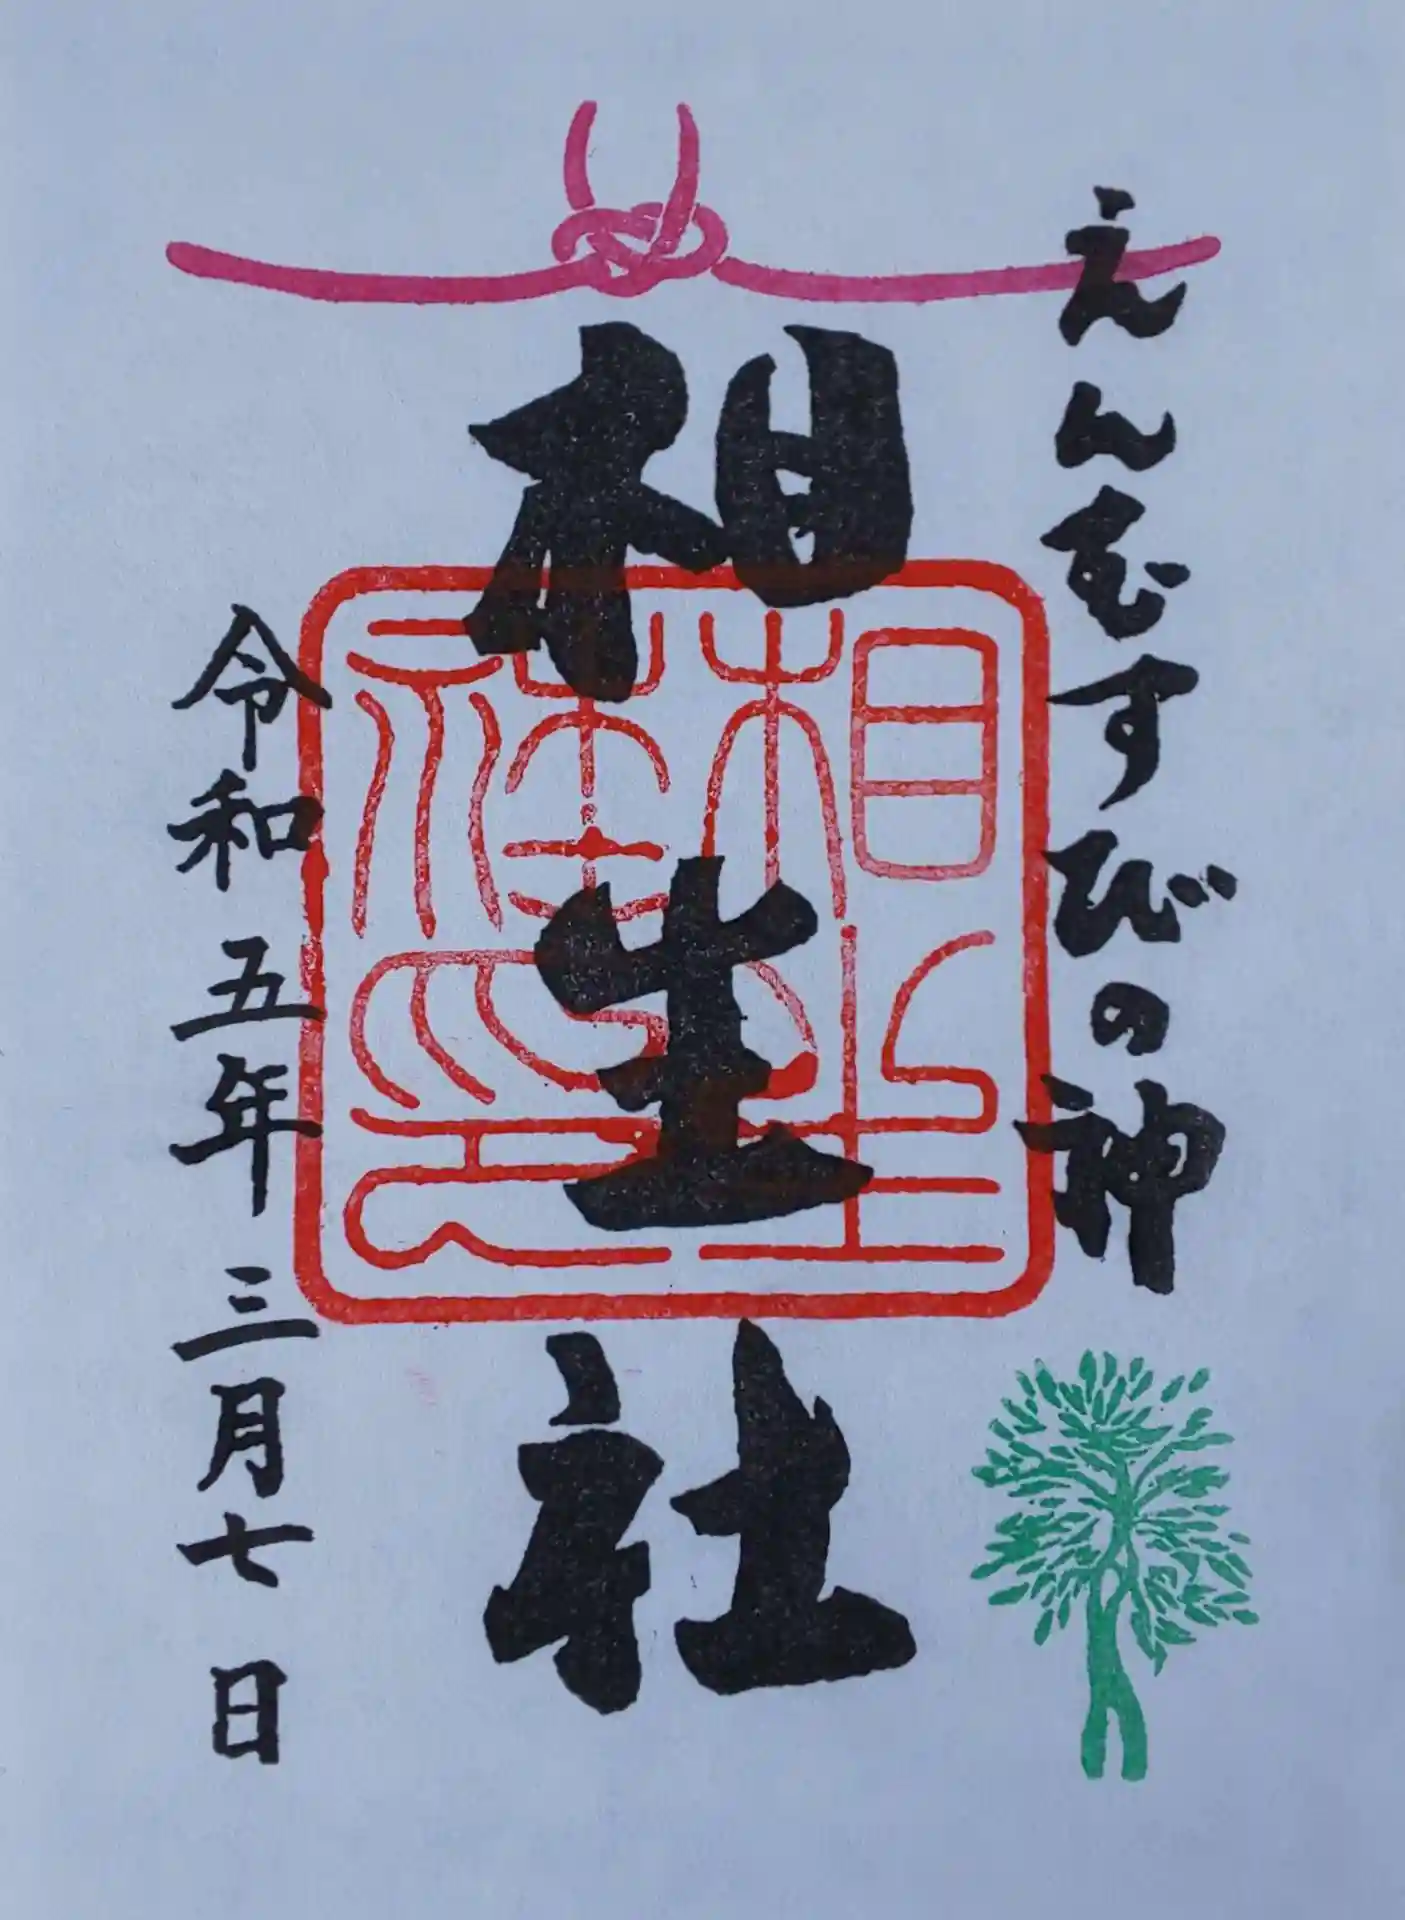 えんむすびの神
相生社
相生社神璽
令和五年三月七日